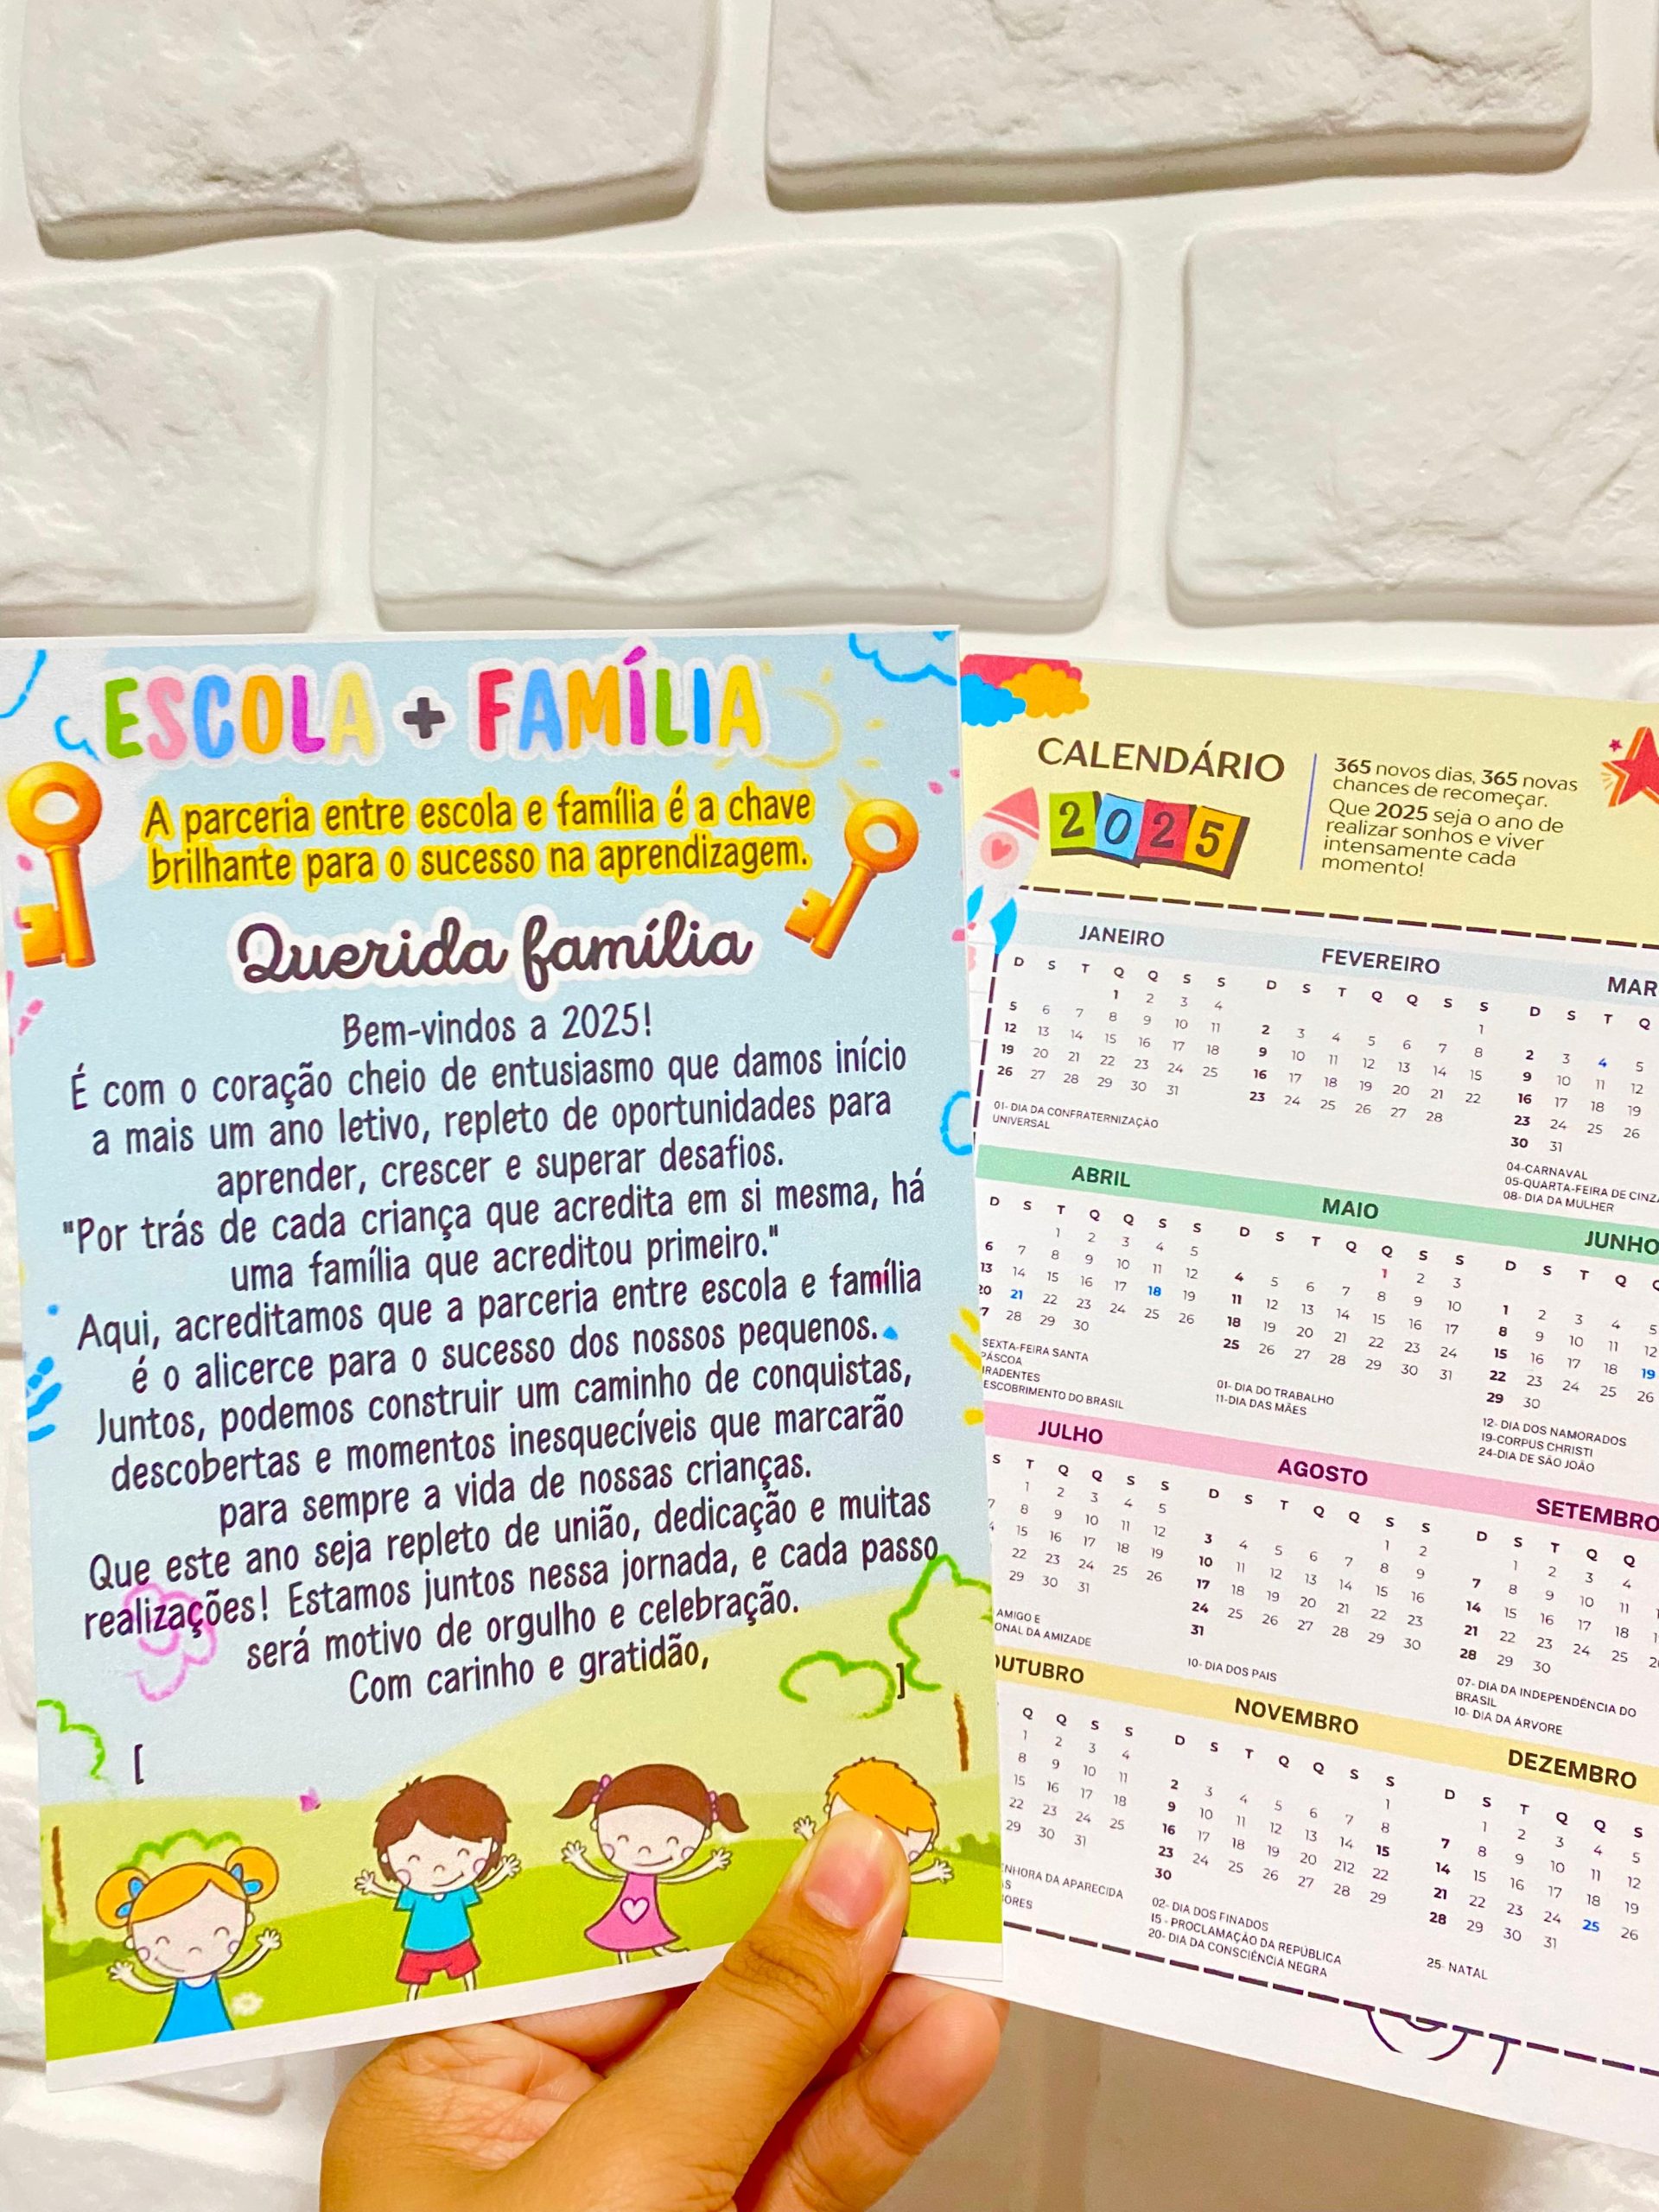 ESCOLA + FAMÍLIA
A parceria entre escola e família é a chave
brilhante para o sucesso na aprendizagem.
Querida família
Bem-vindos a 2025!
É com o coração cheio de entusiasmo que damos início
a mais um ano letivo, repleto de oportunidades para
aprender, crescer e superar desafios.
"Por trás de cada criança que acredita em si mesma, há
uma família que acreditou primeiro."
Aqui, acreditamos que a parceria entre escola e família
é o alicerce para o sucesso dos nossos pequenos.
Juntos, podemos construir um caminho de conquistas,
descobertas e momentos inesquecíveis que marcarão
para sempre a vida de nossas crianças.
Que este ano seja repleto de união, dedicação e muitas
realizações! Estamos juntos nessa jornada, e cada passo
será motivo de orgulho e celebração.
Com carinho e gratidão,
[ ]
CALENDÁRIO
2025
365 novos dias, 365 novas
chances de recomeçar.
Que 2025 seja o ano de
realizar sonhos e viver
intensamente cada
momento!
JANEIRO
D S T Q Q S S
1 2 3 4
5 6 7 8 9 10 11
12 13 14 15 16 17 18
19 20 21 22 23 24 25
26 27 28 29 30 31
01- DIA DA CONFRATERNIZAÇÃO
UNIVERSAL
FEVEREIRO
D S T Q Q S S
1
2 3 4 5 6 7 8
9 10 11 12 13 14 15
16 17 18 19 20 21 22
23 24 25 26 27 28
MAR
D S T Q
2 3 4 5
9 10 11 12
16 17 18 19
23 24 25 26
30 31
04-CARNAVAL
05-QUARTA-FEIRA DE CINZ
08- DIA DA MULHER
ABRIL
D S T Q Q S S
1 2 3 4 5
6 7 8 9 10 11 12
13 14 15 16 17 18 19
20 21 22 23 24 25 26
7 28 29 30
SEXTA-FEIRA SANTA
PÁSCOA
IRADENTES
ESCOBRIMENTO DO BRASIL
MAIO
D S T Q Q S S
1 2 3
4 5 6 7 8 9 10
11 12 13 14 15 16 17
18 19 20 21 22 23 24
25 26 27 28 29 30 31
01- DIA DO TRABALHO
11-DIA DAS MÃES
JUNHO
D S T Q Q
1 2 3 4 5
8 9 10 11 12
15 16 17 18 19
22 23 24 25 26
29 30
12- DIA DOS NAMORADOS
19-CORPUS CHRISTI
24-DIA DE SÃO JOÃO
JULHO
S T Q Q S S
1 2 3 4 5
7 8 9 10 11 12
4 15 16 17 18 19
22 23 24 25 26
29 30 31
AMIGO E
ONAL DA AMIZADE
AGOSTO
D S T Q Q S S
1 2
3 4 5 6 7 8 9
10 11 12 13 14 15 16
17 18 19 20 21 22 23
24 25 26 27 28 29 30
31
10- DIA DOS PAIS
SETEMBRO
D S T Q Q
1 2 3 4
7 8 9 10 11
14 15 16 17 18
21 22 23 24 25
28 29 30
07- DIA DA INDEPENDÊNCIA DO
BRASIL
10- DIA DA ÁRVORE
OUTUBRO
Q Q S S
1 2 3 4
8 9 10 11
15 16 17 18
22 23 24 25
29 30 31
NHORA DA APARECIDA
S
ORES
NOVEMBRO
D S T Q Q S S
1
2 3 4 5 6 7 8
9 10 11 12 13 14 15
16 17 18 19 20 212 22
23 24 25 26 27 28 29
30
02- DIA DOS FINADOS
15 - PROCLAMAÇÃO DA REPÚBLICA
20- DIA DA CONSCIÊNCIA NEGRA
DEZEMBRO
D S T Q Q S
1 2 3 4 5
7 8 9 10 11 12
14 15 16 17 18 19
21 22 23 24 25 26
28 29 30 31
25- NATAL